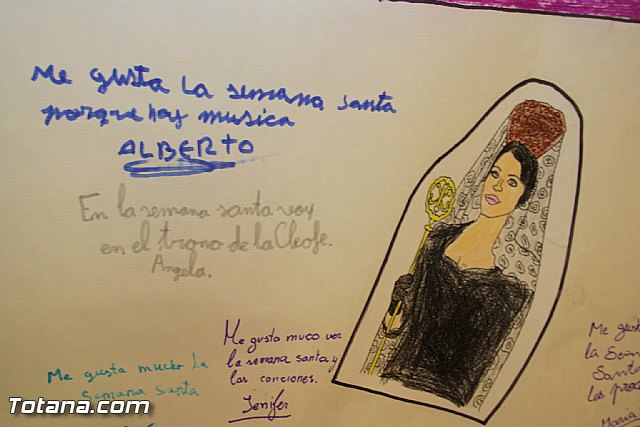 Me gusta la semana santa
porque hay musica
ALBERTO
En la semana santa voy
en el trono de la Cleofe.
Angela.
Me gusta muco ver
la semana santa y
las canciones.
Jenifer
Me gusta mucho la
Semana Santa
Me gu
la Sem
Santa
los
Maria
Totana.com